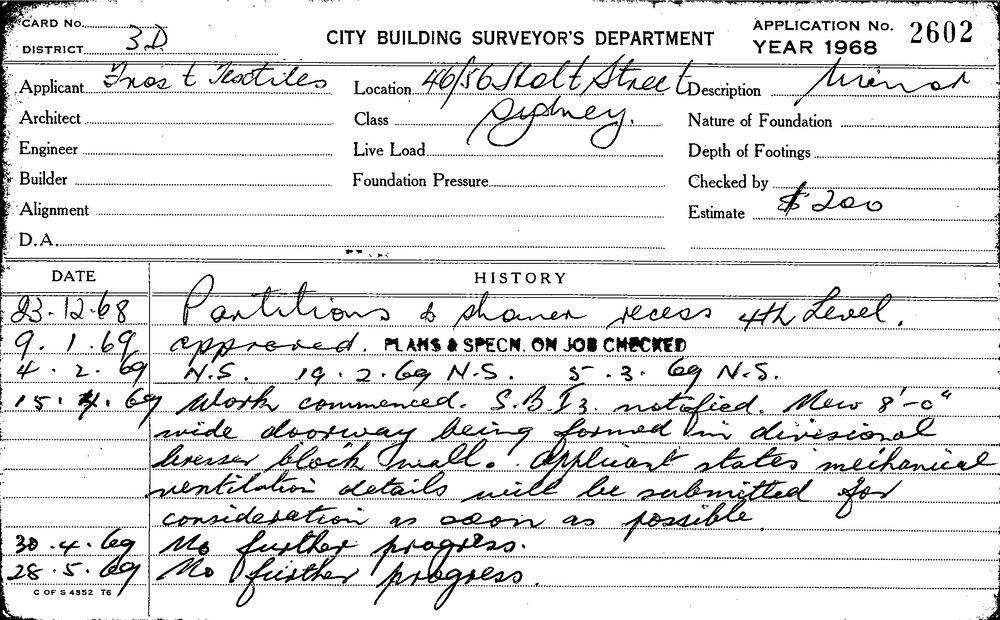 CARD No.
DISTRICT 3D
CITY BUILDING SURVEYOR'S DEPARTMENT
APPLICATION No. 2602
YEAR 1968
Applicant Textiles
Location 46/56 Holt Street
Sydney.
Description Minor
Architect
Class
Nature of Foundation
Engineer
Live Load
Depth of Footings
Builder
Foundation Pressure
Checked by
Alignment
Estimate $200
D.A.
DATE HISTORY
23.12.68 Partitions & shower recess 4th Level.
9.1.69 approved. PLANS & SPECN. ON JOB CHECKED
4.2.69 N.S. 19.2.69 N.S. 5.3.69 N.S.
15.4.69 Work commenced. S.B.I3. notified. New 8'-0"
wide doorway being formed in divisional
breeser block wall. Applicant states mechanical
ventilation details will be submitted for
consideration as soon as possible.
30.4.69 No further progress.
28.5.69 No further progress.
C OF S 4352 T6